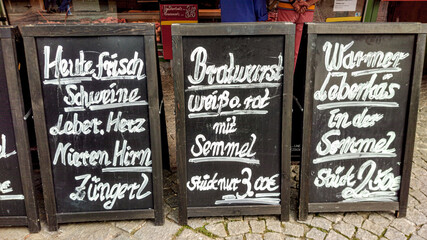 Heute frisch
Schweine
Leber, Herz
Nieren Hirn
Züngerl
Bratwurst
weiß o. rot
mit
Semmel
Stück nur 3.00€
Warmer
Leberkäs
in der
Semmel
Stück 2.50€